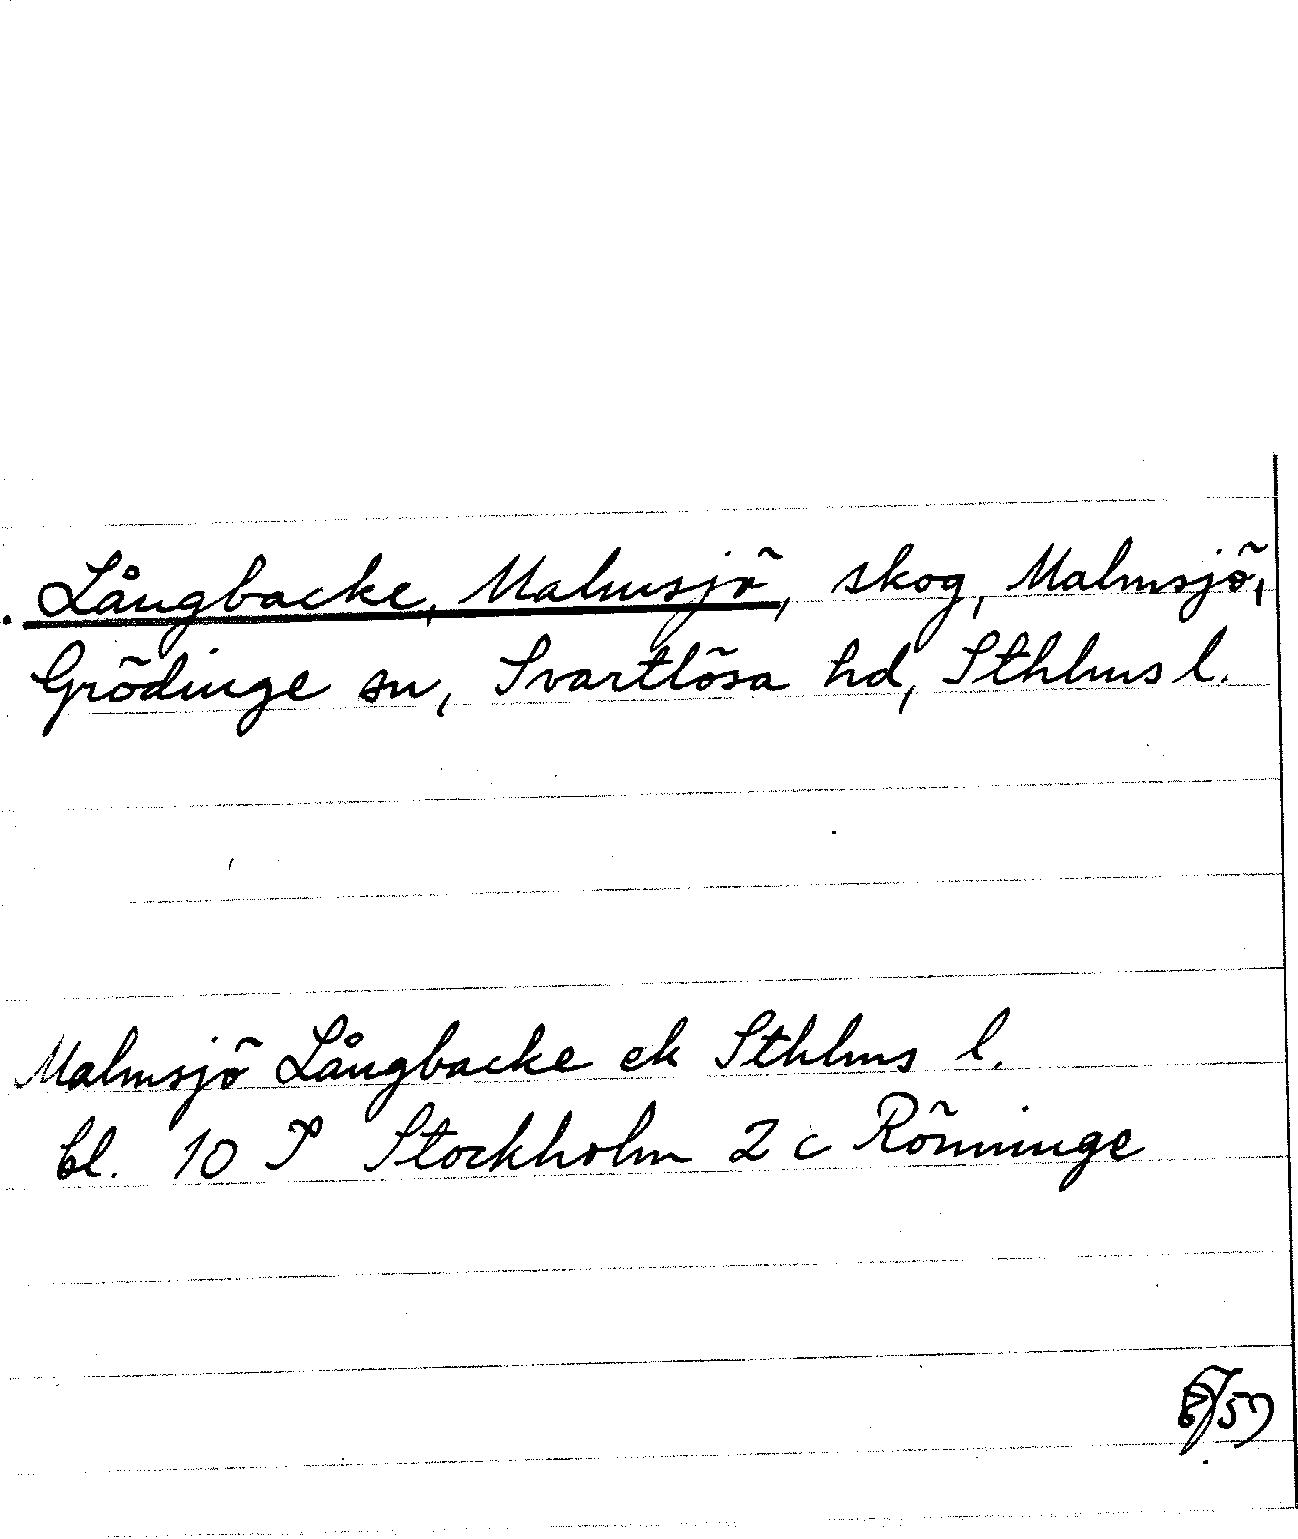 Långbacke, Malmsjö, skog, Malmsjö,
Grödinge sn, Svartlösa hd, Sthlms l.
Malmsjö Långbacke ek Sthlms l.
bl. 10 I Stockholm 2 c Rönninge